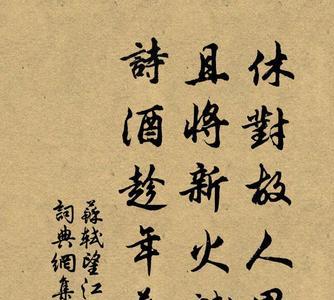 休對故人
且將新火
詩酒趁年
蘇軾望江
詞典網集